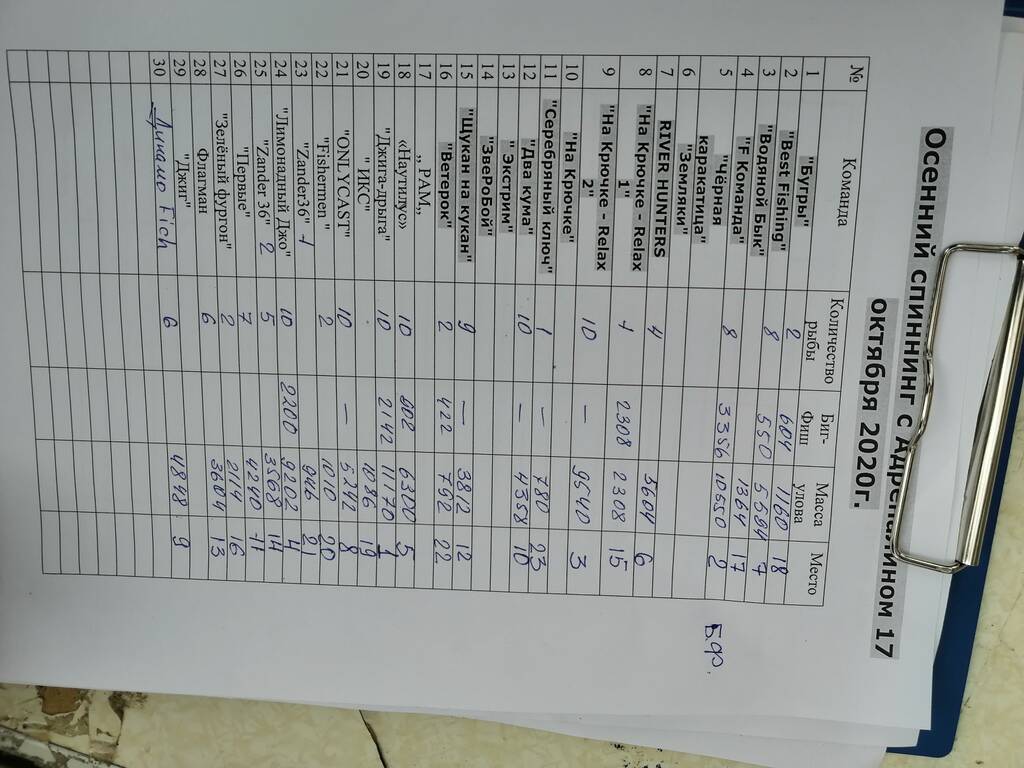 Осенний спиннинг с Адреналином 17
октября 2020г.
№ Команда Количество рыбы Биг-Фиш Масса улова Место
1 "Бугры"
2 "Best Fishing" 2 604 1160 18
3 "Водяной Бык" 8 550 5504 7
4 "F Команда" 1364 17
5 "Чёрная каракатица" 8 3356 10550 2 Б.Ф.
6 "Земляки"
7 RIVER HUNTERS 4 3604 6
8 "На Крючке - Relax 1" 4 2308 2308 15
9 "На Крючке - Relax 2" 10 — 9540 3
10 "На Крючке"
11 "Серебряный ключ" 1 — 780 23
12 "Два кума" 10 — 4358 10
13 " Экстрим"
14 "ЗвеРоБой"
15 "Щукан на кукан" 9 — 3812 12
16 "Ветерок" 2 422 792 22
17 ,, РАМ,,
18 «Наутилус» 10 902 6300 5
19 "Джига-дрыга" 10 2142 11170 1
20 " ИКС" 1086 19
21 "ONLYCAST" 10 — 5242 8
22 "Fishermen " 2 1010 20
23 "Zander36" 1 946 21
24 "Лимонадный Джо" 10 2200 9202 4
25 "Zander 36" 2 5 3568 14
26 "Первые" 7 4240 11
27 "Зелёный фургон" 2 2114 16
28 Флагман 6 3604 13
29 "Джиг" 4828 9
30 Динамо Fich 6